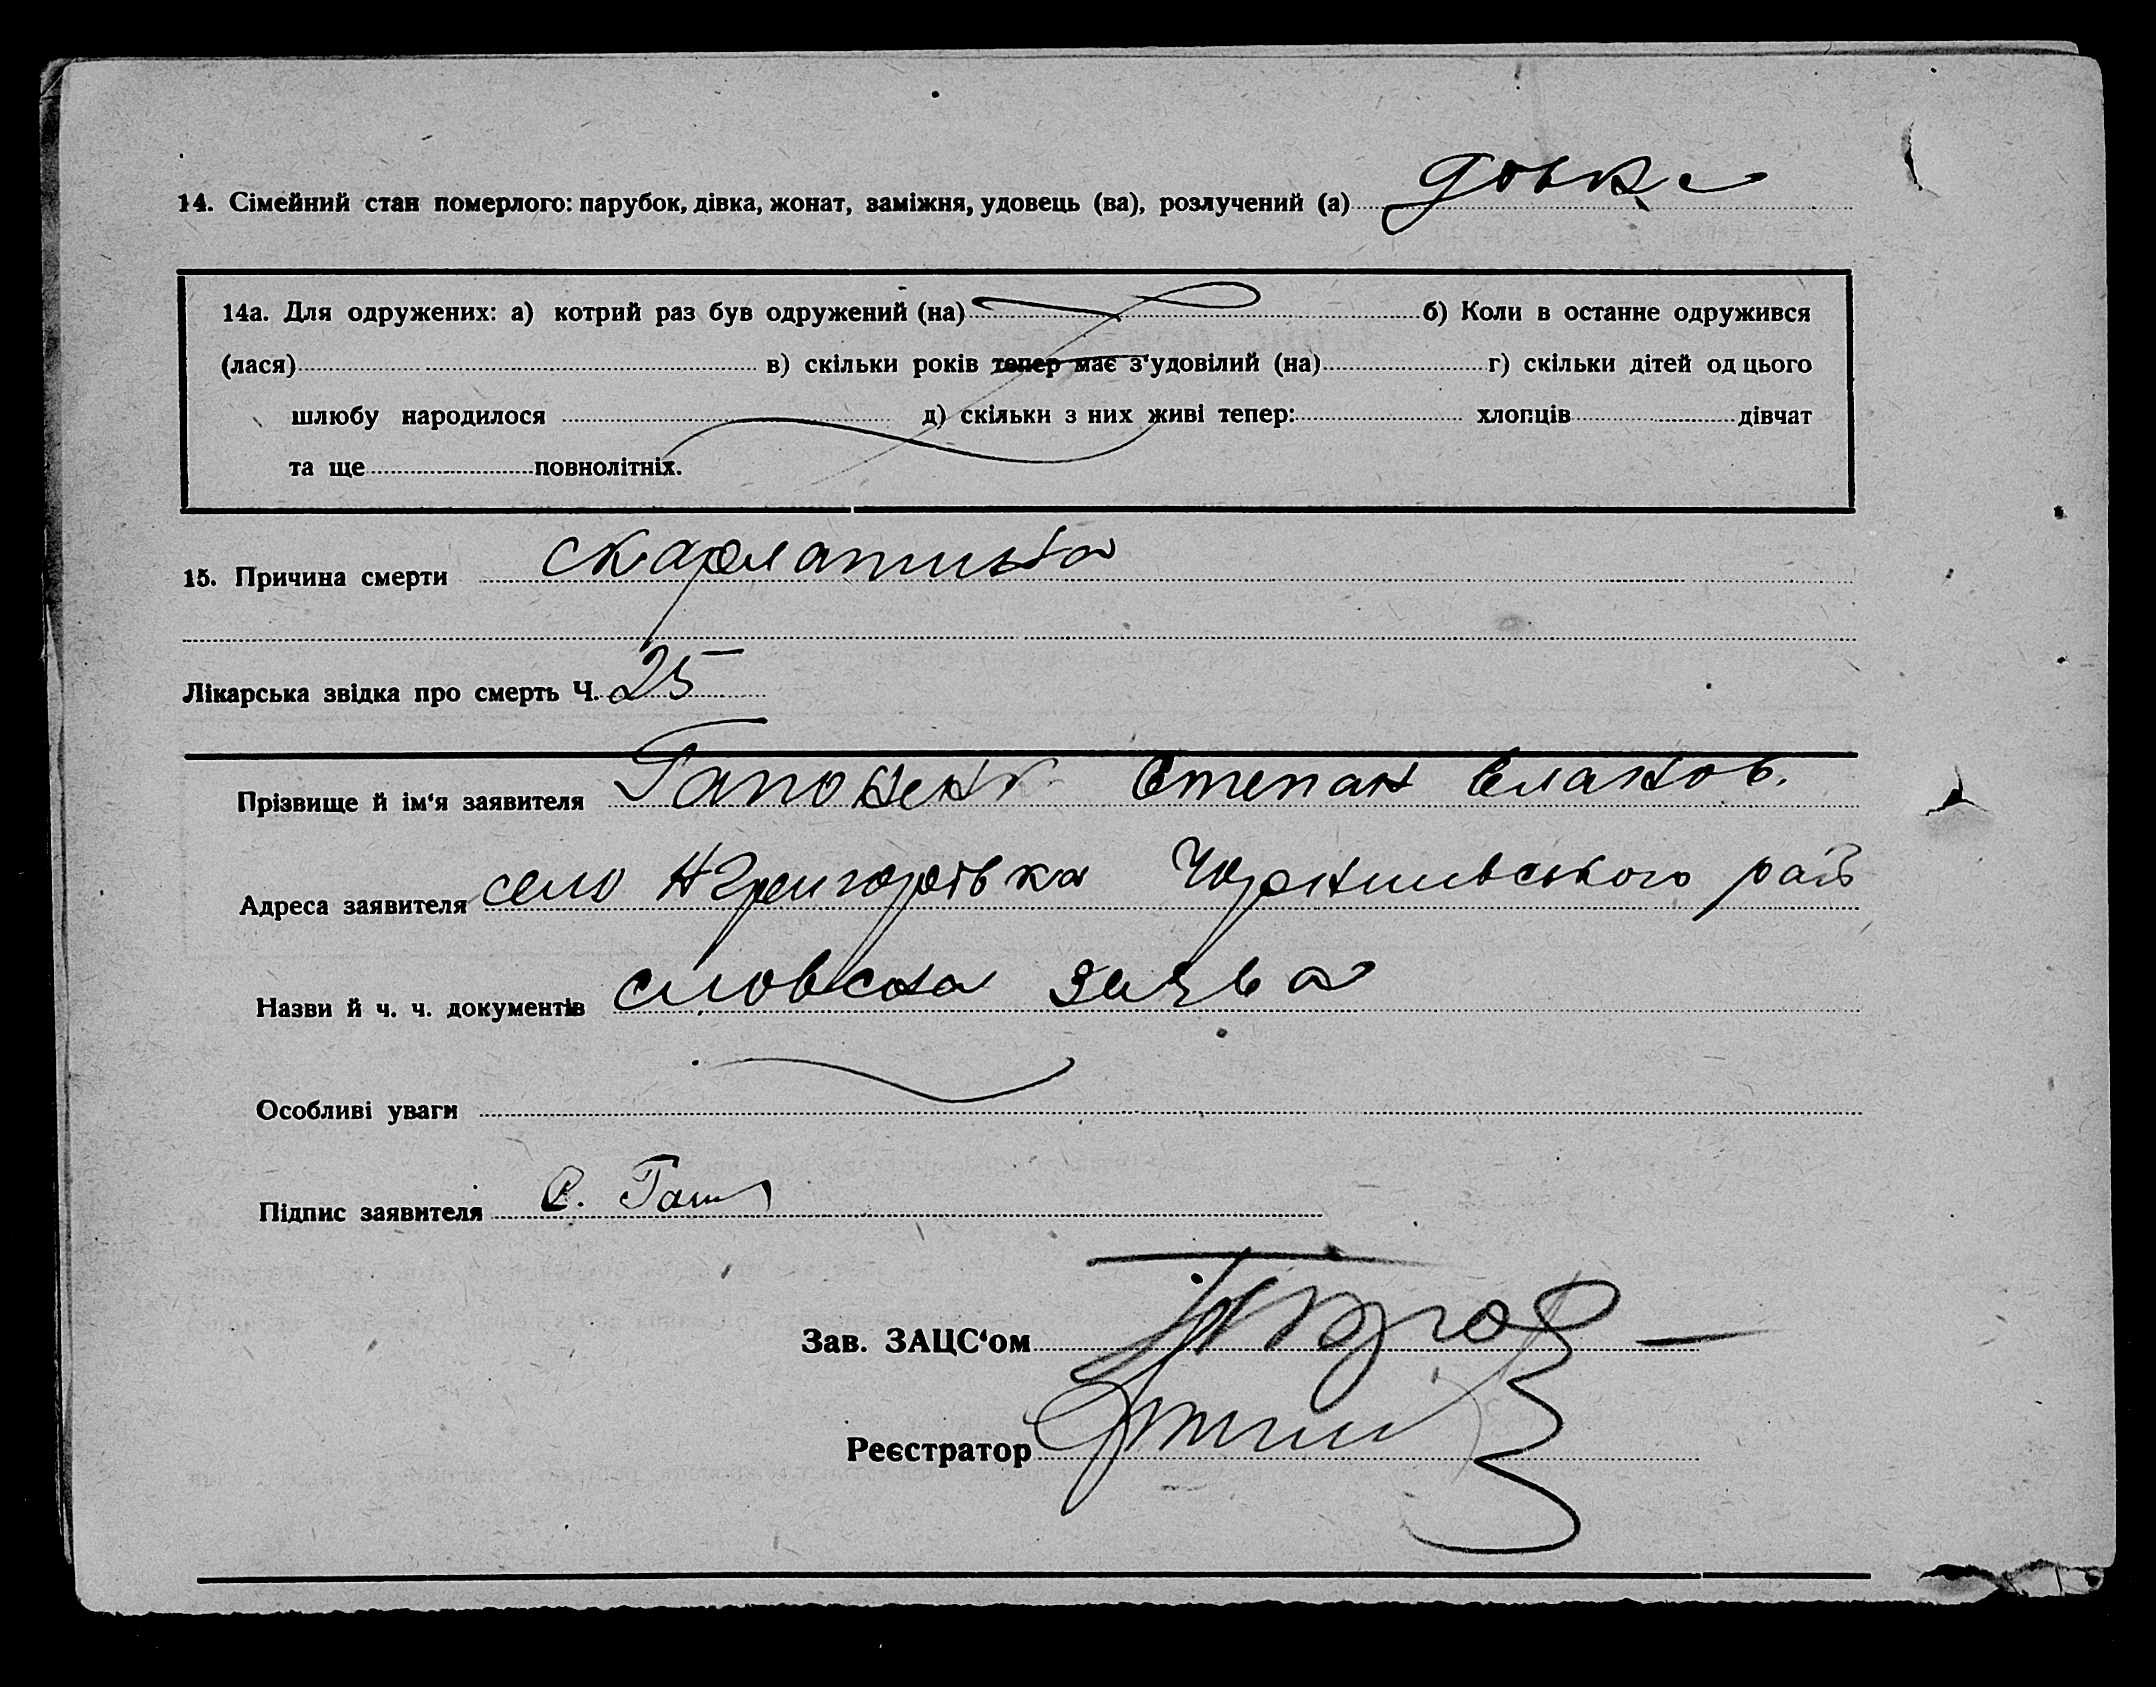 14. Сімейний стан померлого: парубок, дівка, жонат, заміжня, удовець (ва), розлучений (а)
14а. Для одружених: а) котрий раз був одружений (на) б) Коли в останне одружився
(лася) в) скільки років тепер має з'удовілий (на) г) скільки дітей од цього
шлюбу народилося д) скільки з них живі тепер: хлопців дівчат
та ще повнолітніх.
15. Причина смерти скарлатина
Лікарська звідка про смерть Ч. 25
Прізвище й ім'я заявителя Гапоненк Степан
Адреса заявителя село Н Григорівка Чернишівського рай
Назви й ч. ч. документів словсна заява
Особливі уваги
Підпис заявителя С. Гап
Зав. ЗАЦС'ом
Реєстратор